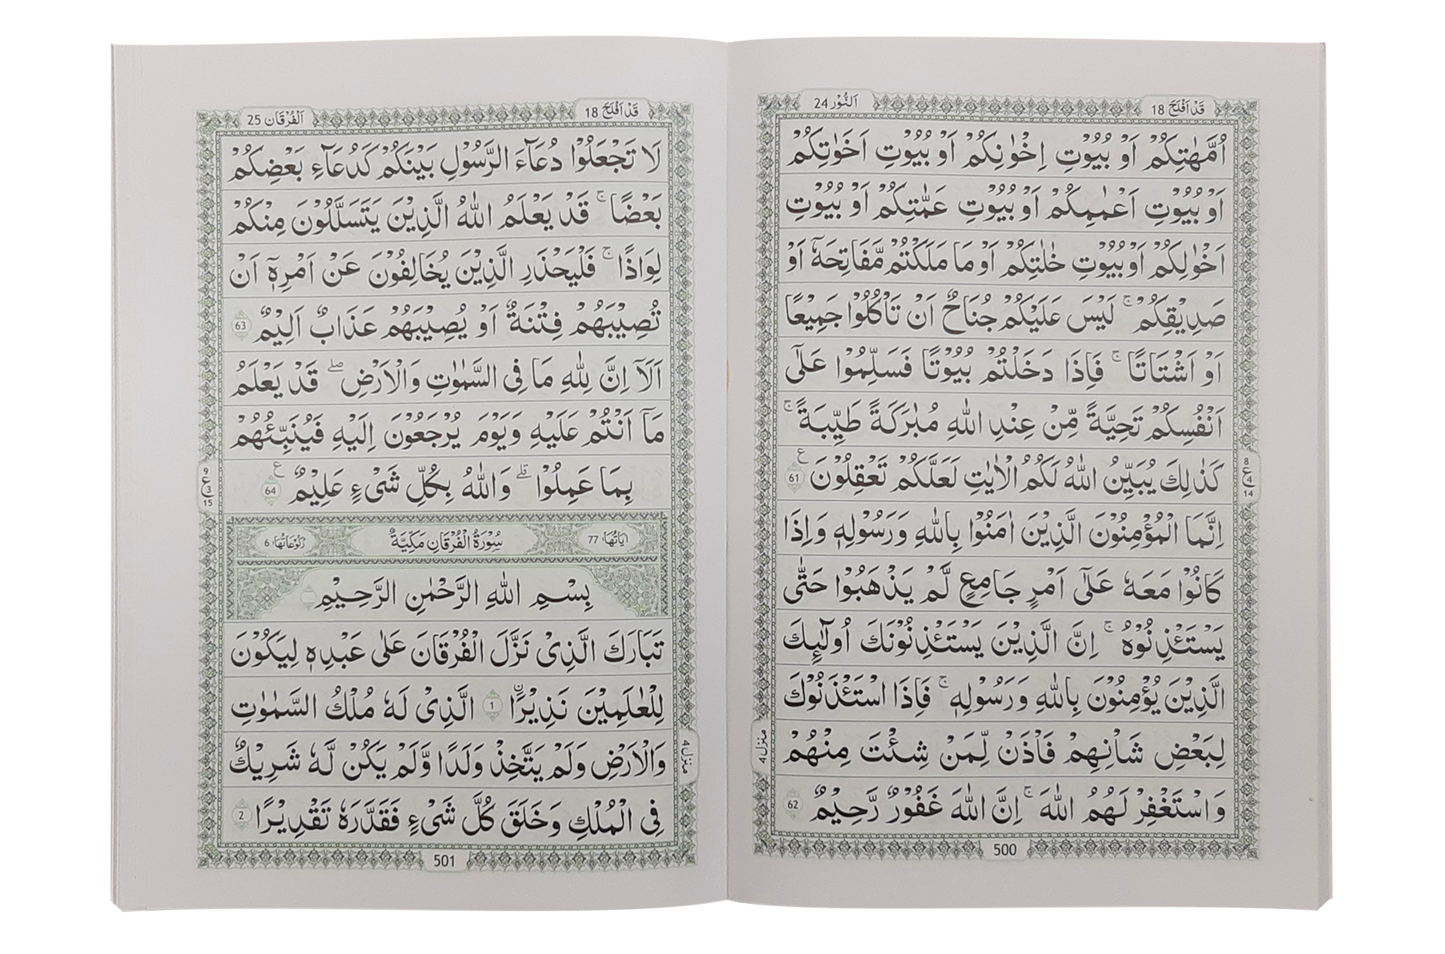 قَدْ اَفْلَحَ 18
اَلنُّوْر 24
اُمَّهٰتِكُمْ اَوْ بُيُوْتِ اِخْوَانِكُمْ اَوْ بُيُوْتِ اَخَوٰتِكُمْ
اَوْ بُيُوْتِ اَعْمَامِكُمْ اَوْ بُيُوْتِ عَمّٰتِكُمْ اَوْ بُيُوْتِ
اَخْوَالِكُمْ اَوْ بُيُوْتِ خٰلٰتِكُمْ اَوْ مَا مَلَكْتُمْ مَّفَاتِحَهٗۤ اَوْ
صَدِيْقِكُمْ ۚ لَيْسَ عَلَيْكُمْ جُنَاحٌ اَنْ تَاْكُلُوْا جَمِيْعًا
اَوْ اَشْتَاتًا ۚ فَاِذَا دَخَلْتُمْ بُيُوْتًا فَسَلِّمُوْا عَلٰۤى
اَنْفُسِكُمْ تَحِيَّةً مِّنْ عِنْدِ اللّٰهِ مُبٰرَكَةً طَيِّبَةً ۚ
كَذٰلِكَ يُبَيِّنُ اللّٰهُ لَكُمُ الْاٰيٰتِ لَعَلَّكُمْ تَعْقِلُوْنَ 61 ع
اِنَّمَا الْمُؤْمِنُوْنَ الَّذِيْنَ اٰمَنُوْا بِاللّٰهِ وَرَسُوْلِهٖ وَاِذَا
كَانُوْا مَعَهٗ عَلٰۤى اَمْرٍ جَامِعٍ لَّمْ يَذْهَبُوْا حَتّٰى
يَسْتَاْذِنُوْهُ ۚ اِنَّ الَّذِيْنَ يَسْتَاْذِنُوْنَكَ اُولٰٓئِكَ
الَّذِيْنَ يُؤْمِنُوْنَ بِاللّٰهِ وَرَسُوْلِهٖ ۚ فَاِذَا اسْتَاْذَنُوْكَ
لِبَعْضِ شَاْنِهِمْ فَاْذَنْ لِّمَنْ شِئْتَ مِنْهُمْ
وَاسْتَغْفِرْ لَهُمُ اللّٰهَ ۚ اِنَّ اللّٰهَ غَفُوْرٌ رَّحِيْمٌ 62
8
ع 4
14
منزل ٤
500
قَدْ اَفْلَحَ 18
اَلْفُرْقَان 25
لَا تَجْعَلُوْا دُعَآءَ الرَّسُوْلِ بَيْنَكُمْ كَدُعَآءِ بَعْضِكُمْ
بَعْضًا ۚ قَدْ يَعْلَمُ اللّٰهُ الَّذِيْنَ يَتَسَلَّلُوْنَ مِنْكُمْ
لِوَاذًا ۚ فَلْيَحْذَرِ الَّذِيْنَ يُخَالِفُوْنَ عَنْ اَمْرِهٖۤ اَنْ
تُصِيْبَهُمْ فِتْنَةٌ اَوْ يُصِيْبَهُمْ عَذَابٌ اَلِيْمٌ 63
اَلَاۤ اِنَّ لِلّٰهِ مَا فِى السَّمٰوٰتِ وَالْاَرْضِ ؕ قَدْ يَعْلَمُ
مَاۤ اَنْتُمْ عَلَيْهِ وَيَوْمَ يُرْجَعُوْنَ اِلَيْهِ فَيُنَبِّئُهُمْ
بِمَا عَمِلُوْا ؕ وَاللّٰهُ بِكُلِّ شَىْءٍ عَلِيْمٌ 64 ع
9
ع 3
15
اٰيَاتُهَا: 77
سُوْرَةُ الْفُرْقَانِ مَكِّيَّةٌ
رُكُوْعَاتُهَا: 6
بِسْمِ اللّٰهِ الرَّحْمٰنِ الرَّحِيْمِ
تَبَارَكَ الَّذِىْ نَزَّلَ الْفُرْقَانَ عَلٰى عَبْدِهٖ لِيَكُوْنَ
لِلْعٰلَمِيْنَ نَذِيْرًا 1 الَّذِىْ لَهٗ مُلْكُ السَّمٰوٰتِ
وَالْاَرْضِ وَلَمْ يَتَّخِذْ وَلَدًا وَّلَمْ يَكُنْ لَّهٗ شَرِيْكٌ
فِى الْمُلْكِ وَخَلَقَ كُلَّ شَىْءٍ فَقَدَّرَهٗ تَقْدِيْرًا 2
منزل ٤
501